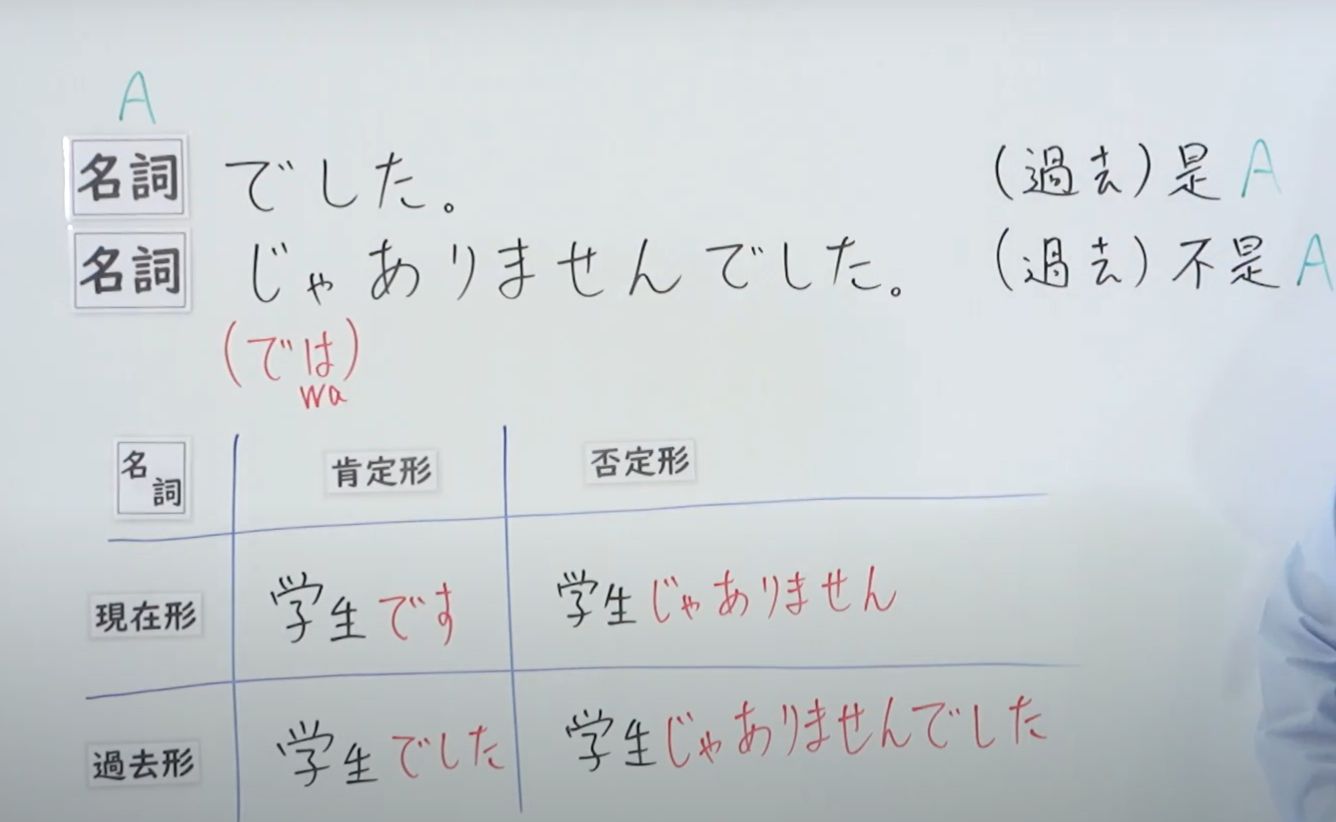 A
名詞 でした。 (過去)是A
名詞 じゃありませんでした。 (過去)不是A
(では)
wa
名詞 肯定形 否定形
現在形 学生です 学生じゃありません
過去形 学生でした 学生じゃありませんでした